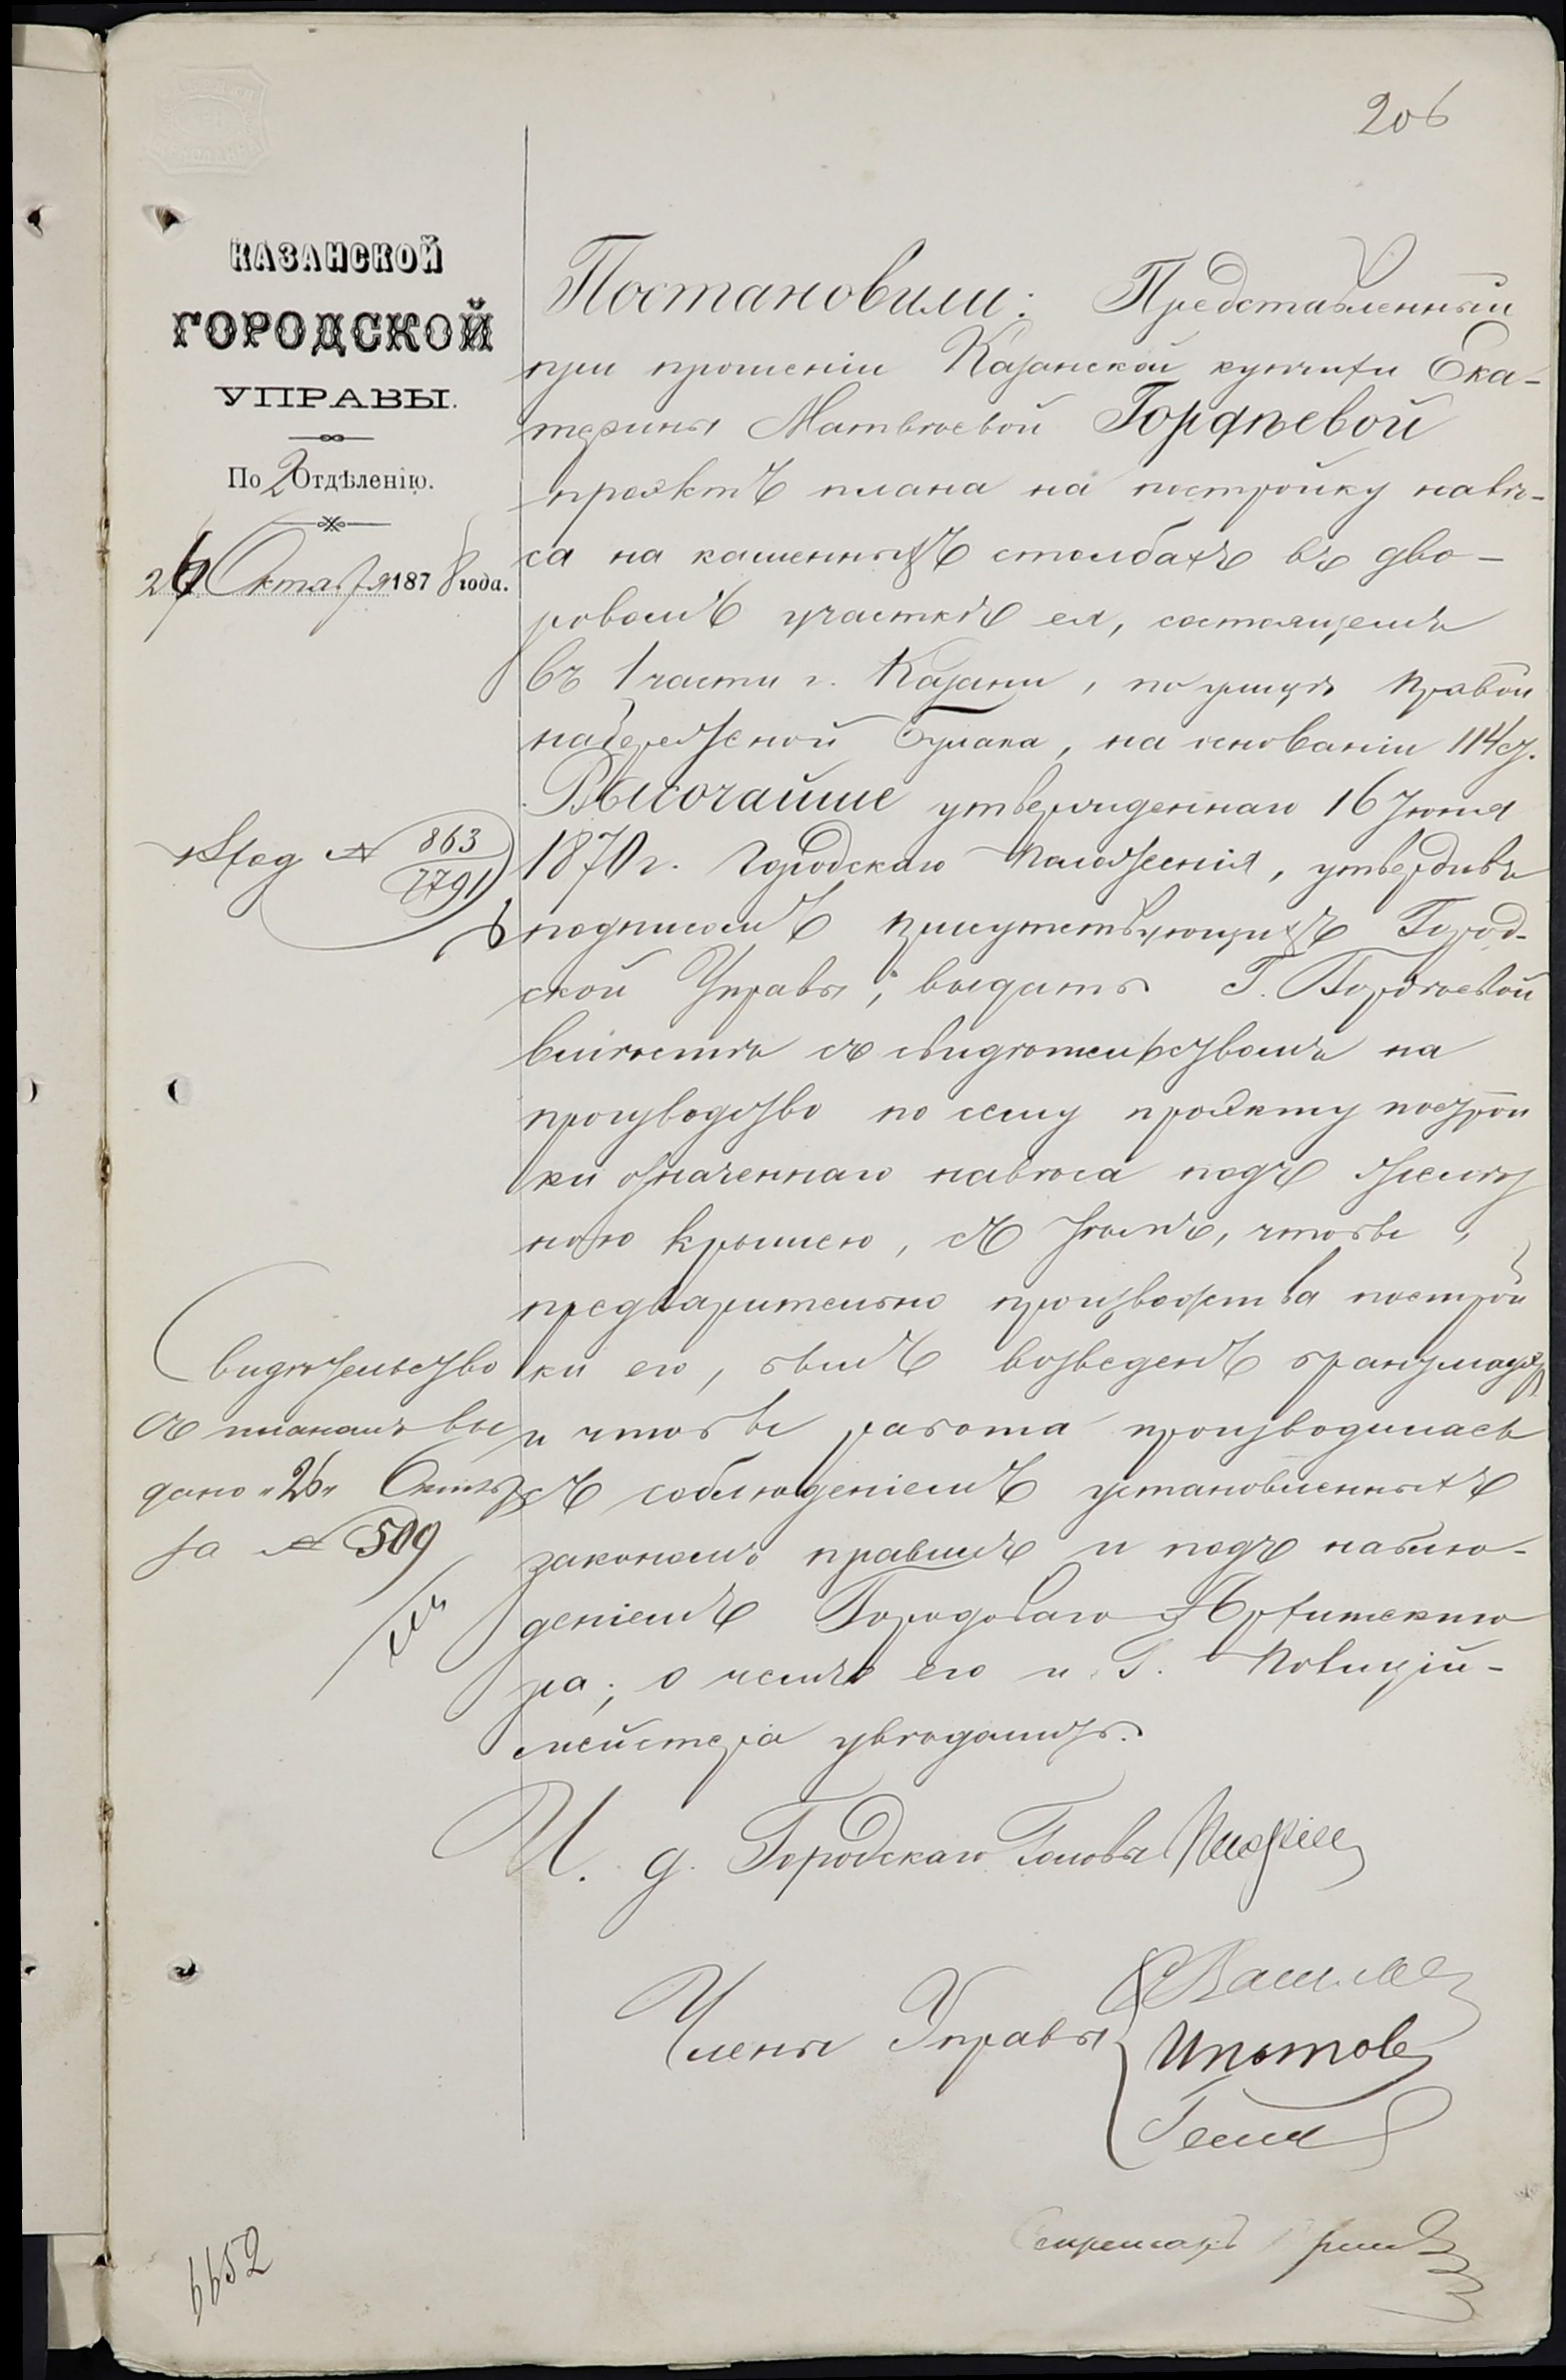 206
КАЗАНСКОЙ
ГОРОДСКОЙ
УПРАВЫ.
По 2 Отдѣленію.
26 Октября 1878 года.
Постановили: Представленный
при прошеніи Казанской купчихи Ека-
терины Матвѣевой Гордѣевой
проэктъ плана на постройку навѣ-
са на каменныхъ столбахъ въ дво-
ровомъ участкѣ ея, состоящемъ
въ 1 части г. Казани, по улицѣ Правой
набережной Булака, на основаніи 114 ст.
Высочайше утвержденнаго 16 Іюня
1870 г. Городскаго Положенія, утвердивъ
подписомъ присутствующихъ Город-
ской Управы, выдать Г. Гордѣевой
вмѣстѣ съ свидѣтельствомъ на
производство по сему проэкту построй
ки означеннаго навѣса подъ желѣз
ною крышею, съ тѣмъ, чтобы,
предварительно производства построй
ки его, былъ возведенъ брандмауэръ
и чтобы работа производилась
съ соблюденіемъ установленныхъ
закономъ правилъ и подъ наблю-
деніемъ Городоваго Архитекто
ра; о чемъ его и Г. Полицій-
мейстера увѣдомить.
863
7791
Свидѣтельство
съ планомъ вы
дано "26" Октяб
за № 509
И. д. Городскаго Головы
Члены Управы
Ипатовъ
Секретарь
6652